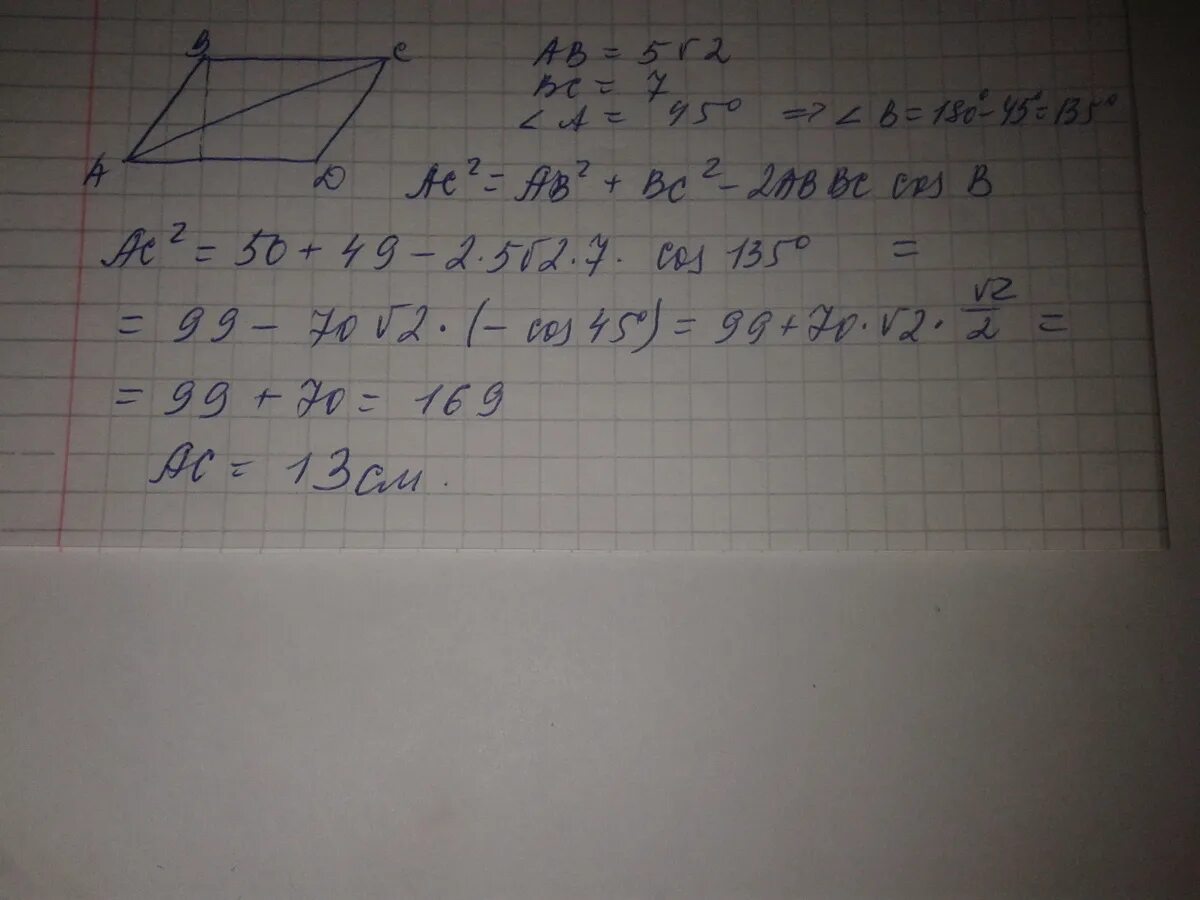 B C
A D
AB = 5√2
BC = 7
∠A = 45° => ∠B = 180° - 45° = 135°
AC² = AB² + BC² - 2AB BC cos B
AC² = 50 + 49 - 2·5√2·7· cos 135° =
= 99 - 70√2·(- cos 45°) = 99 + 70·√2· √2/2 =
= 99 + 70 = 169
AC = 13 см.